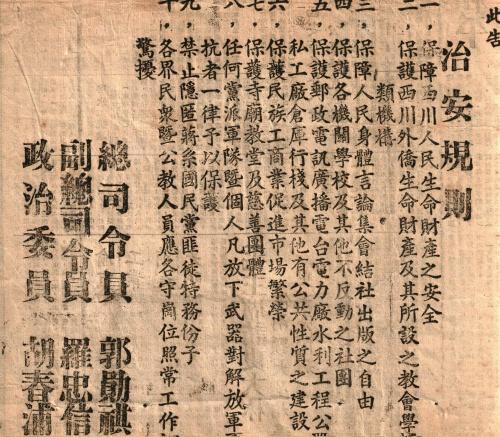 此告
治安規則
一，保障西川人民生命財產之安全
二，保護西川外僑生命財產及其所設之教會學
類機構
三，保障人民身體言論集會結社出版之自由
四，保護各機關學校及其他不反動之社團
五，保護郵政電訊廣播電台電力廠水利工程公
私工廠倉庫行棧及其他有公共性質之建設
六，保護民族工商業促進市場繁榮
七，保護寺廟教堂及慈善團體
八，任何黨派軍隊暨個人凡放下武器對解放軍
抗者一律予以保護
九，禁止隱匿蔣系國民黨匪徒特務份子
十，各界民衆暨公教人員應各守崗位照常工作
驚擾
總司令員 郭勛祺
副總司令員 羅忠信
政治委員 胡春浦